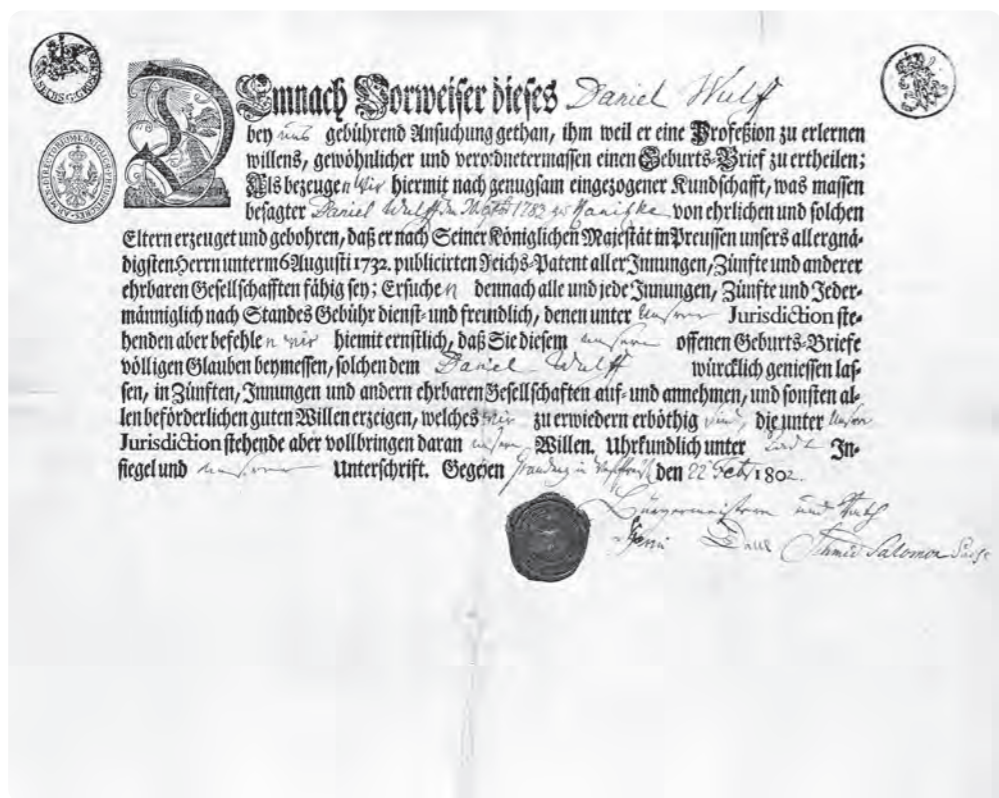 SECHS G. GROSCH
Demnach Vorweiser dieses Daniel Wulff
bey uns gebührend Ansuchung gethan, ihm weil er eine Profeßion zu erlernen
willens, gewöhnlicher und verordnetermassen einen Geburts-Brief zu ertheilen;
Als bezeugen Wir hiermit nach genugsam eingezogener Kundschafft, was massen
besagter Daniel Wulff 1782 zu von ehrlichen und solchen
Eltern erzeuget und gebohren, daß er nach Seiner Königlichen Majestät in Preussen unsers allergnä-
digsten Herrn unterm 6 Augusti 1732. publicirten Reichs-Patent aller Innungen, Zünfte und anderer
ehrbaren Gesellschafften fähig sey; Ersuchen dennach alle und jede Innungen, Zünfte und Jeder-
männiglich nach Standes Gebühr dienst- und freundlich, denen unter Unserer Jurisdiction ste-
henden aber befehlen wir hiemit ernstlich, daß Sie diesem unserm offenen Geburts-Briefe
völligen Glauben beymessen, solchen dem Daniel Wulff würcklich geniessen las-
sen, in Zünften, Innungen und andern ehrbaren Gesellschaften auf- und annehmen, und sonsten al-
len beförderlichen guten Willen erzeigen, welches wir zu erwiedern erböthig sind, die unter Unserer
Jurisdiction stehende aber vollbringen daran unsern Willen. Uhrkundlich unter In-
siegel und unserer Unterschrift. Gegeben in den 22 Feb 1802.
Bürgermeistern und Rath
Paul Schmid Salomon